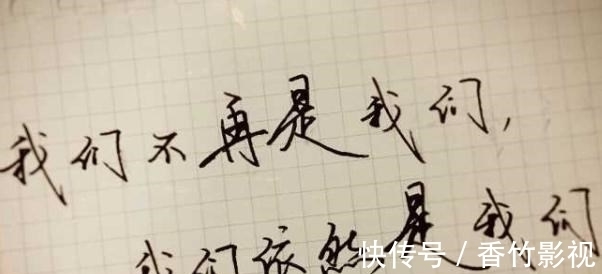 我们不再是我们，
我们依然是我们
快传号／香竹影视